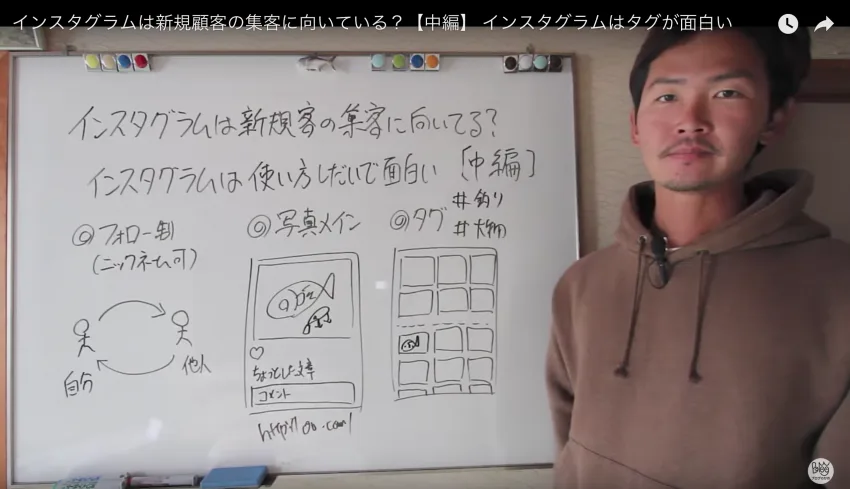 インスタグラムは新規顧客の集客に向いている？【中編】 インスタグラムはタグが面白い
インスタグラムは新規客の集客に向いてる？
インスタグラムは使い方しだいで面白い [中編]
◎フォロー制
(ニックネーム可)
自分
他人
◎写真メイン
♡
ちょっとした文章
コメント
◎タグ
#釣り